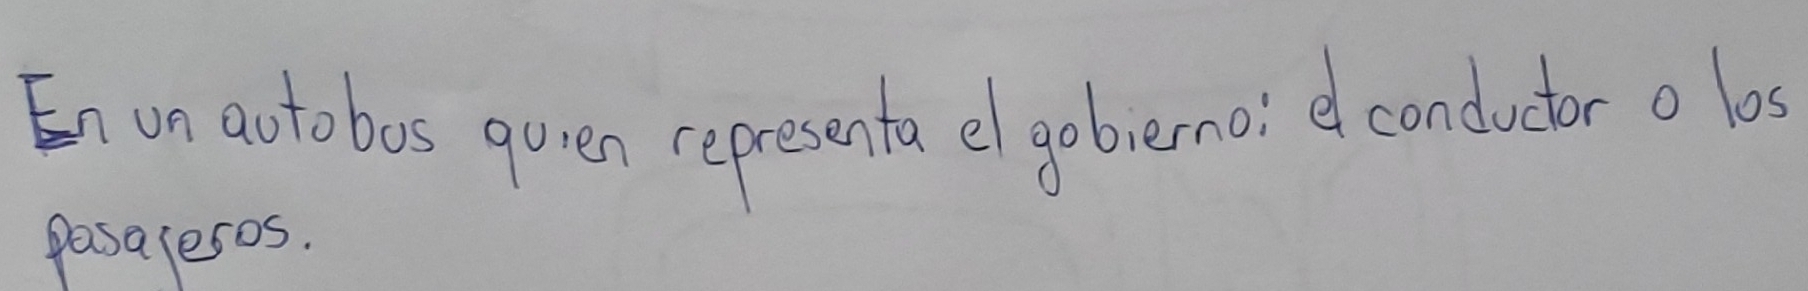 En un autobus quien representa el gobierno: el conductor o los
pasajeros.